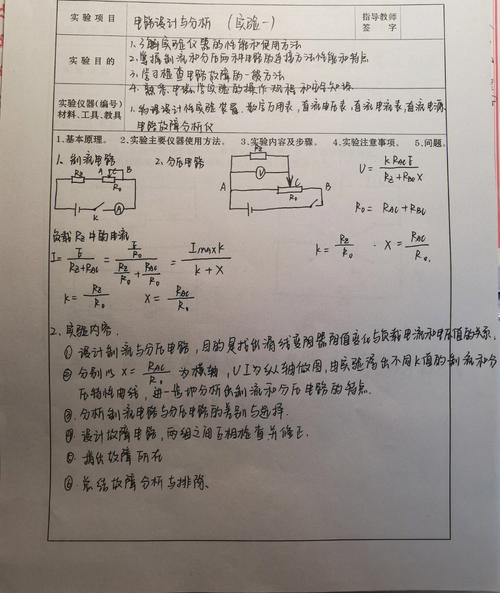 实验项目 电路设计与分析 (实验一) 指导教师签字
实验目的 1、了解实验仪器的性能和使用方法
2、掌握制流和分压两种电路的连接方法性能和特点
3、学习检查电路故障的一般方法
4、熟悉电磁学实验的操作规程和安全知识.
实验仪器(编号)材料、工具、教具 1、物理设计性实验装置、数字万用表,直流电压表,直流电流表,直流电源
电路故障分析仪
1.基本原理。 2.实验主要仪器使用方法。 3.实验内容及步骤。 4.实验注意事项。 5.问题。
1、制流电路 2、分压电路
RZ A C B R0 K A
RZ V A C B R0
U = K RAC E / RZ + RBC X
R0 = RAC + RBC
K = RZ / R0 · X = RAC / R0.
负载RZ中的电流
I = E / RZ+RAC = E/R0 / RZ/R0 + RAC/R0 = Imax K / K + X
K = RZ / R0 X = RAC / R0
2、实验内容.
① 设计制流与分压电路,目的是找出滑线变阻器阻值变化与负载电流和电压值的关系.
② 分别以 X = RAC / R0 为横轴,U I为纵轴做图,由实验得出不同K值的制流和分
压特性曲线,进一步地分析出制流和分压电路的特点.
③ 分析制流电路与分压电路的差别与选择.
④ 设计故障电路,两组之间互相检查并修正.
⑤ 指出故障所在
⑥ 总结故障分析与排除.